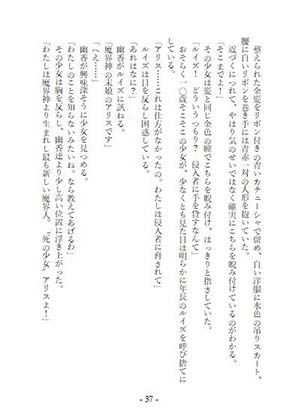 整えられた金髪をリボン付きの青いカチューシャで留め、白い洋服に水色の吊りスカート、
腰に白いリボンを巻き手には青赤一対の人形を抱いていた。
近づくにつれて、やはり気のせいではなく確実にこちらを睨み付けているのがわかる。
「そこまでよ！」
その少女は髪と同じ金色の瞳でこちらを睨み付け、はっきりと指さしていた。
「ルイズ！　どういうつもり？　侵入者に手を貸すなんて」
おそらく一〇歳そこそこの少女が、少なくとも見た目は明らかに年長のルイズを呼び捨てに
している。
「アリス……これは仕方がなかったの。わたしは侵入者に脅されて」
ルイズは目を反らし困惑している。
「あれはなに？」
幽香がルイズに訊ねる。
「魔界神の末娘のアリスです」
「へえ……」
幽香が興味深そうに少女を見つめる。
「わたしのことを知らないみたいね。なら教えてあげる！」
その少女は胸を反らし、幽香達より少し高い位置に浮き上がった。
「わたしは魔界神より生まれし最も新しい魔界人。〝死の少女〟アリスよ！」
- 37 -